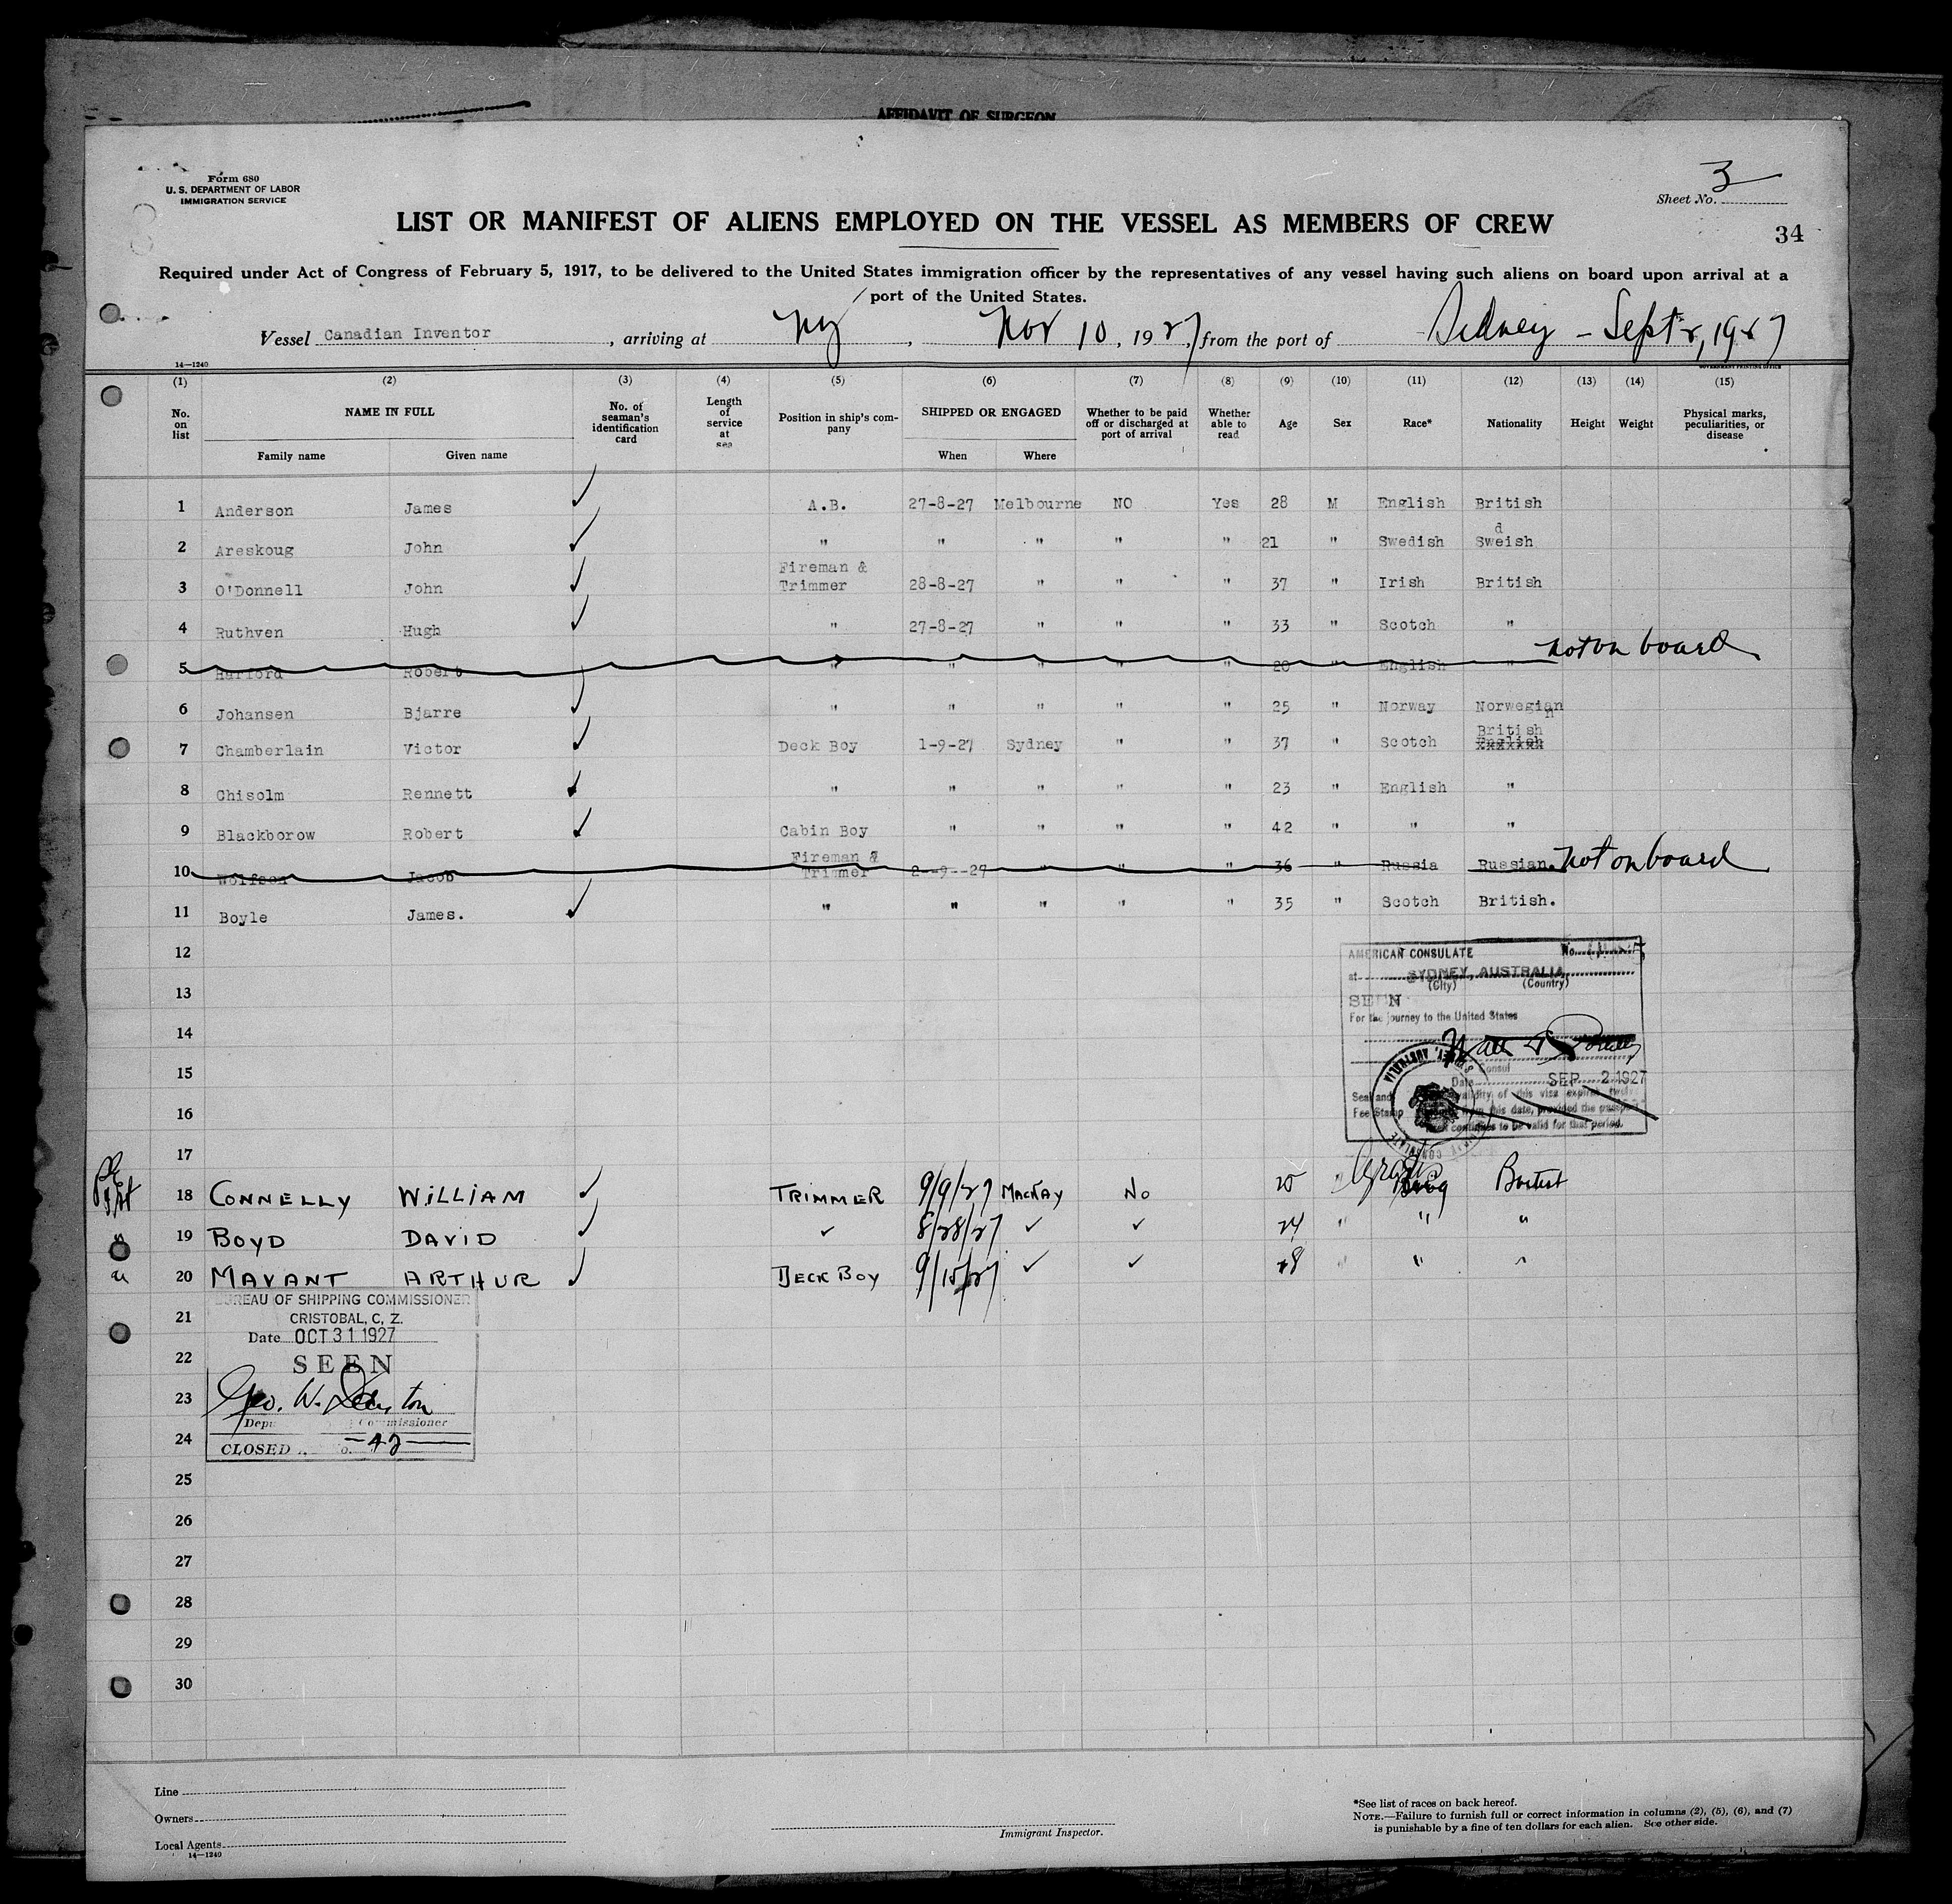 AFFIDAVIT OF SURGEON
Form 680
U. S. DEPARTMENT OF LABOR
IMMIGRATION SERVICE
3
Sheet No.
LIST OR MANIFEST OF ALIENS EMPLOYED ON THE VESSEL AS MEMBERS OF CREW
34
Required under Act of Congress of February 5, 1917, to be delivered to the United States immigration officer by the representatives of any vessel having such aliens on board upon arrival at a
port of the United States.
Vessel Canadian Inventor, arriving at Ny, Nov 10, 1927, from the port of Sidney - Sept 2, 1927
14-1240
GOVERNMENT PRINTING OFFICE
(1) (2) (3) (4) (5) (6) (7) (8) (9) (10) (11) (12) (13) (14) (15)
No. on list NAME IN FULL Family name Given name No. of seaman's identification card Length of service at sea Position in ship's company SHIPPED OR ENGAGED When Where Whether to be paid off or discharged at port of arrival Whether able to read Age Sex Race* Nationality Height Weight Physical marks, peculiarities, or disease
1 Anderson James ✓ A.B. 27-8-27 Melbourne NO Yes 28 M English British
2 Areskoug John ✓ " " " " " 21 " Swedish Sweish d
3 O'Donnell John ✓ Fireman & Trimmer 28-8-27 " " " 37 " Irish British
4 Ruthven Hugh ✓ " 27-8-27 " " " 33 " Scotch "
5 Harford Robert " " " " " 20 " English " not on board
6 Johansen Bjarre ✓ " " " " " 25 " Norway Norwegian n
7 Chamberlain Victor ✓ Deck Boy 1-9-27 Sydney " " 37 " Scotch British English
8 Chisolm Rennett ✓ " " " " " 23 " English "
9 Blackborow Robert ✓ Cabin Boy " " " " 42 " " "
10 Wolfson Jacob Fireman & Trimmer 2--9--27 " " " 36 " Russia Russian. not on board
11 Boyle James. ✓ " " " " " 35 " Scotch British.
12
13
14
15
16
17
AMERICAN CONSULATE No.
at SYDNEY, AUSTRALIA
(City) (Country)
SEEN
For the journey to the United States
Consul
Date SEP 2 1927
Seal and Fee Stamp
validity of this visa expires twelve
from this date, provided the passport
continues to be valid for that period.
18 CONNELLY WILLIAM ✓ TRIMMER 9/9/27 MACKAY No " British
19 BOYD DAVID ✓ ✓ 8/28/27 ✓ ✓ 24 " " "
20 MAVANT ARTHUR ✓ DECK BOY 9/15/27 ✓ ✓ " " "
BUREAU OF SHIPPING COMMISSIONER
CRISTOBAL, C, Z.
Date OCT 31 1927
SEEN
Geo. W.
Commissioner
CLOSED
21
22
23
24
25
26
27
28
29
30
Line
Owners
Local Agents
14-1240
Immigrant Inspector.
*See list of races on back hereof.
NOTE.—Failure to furnish full or correct information in columns (2), (5), (6), and (7)
is punishable by a fine of ten dollars for each alien. See other side.